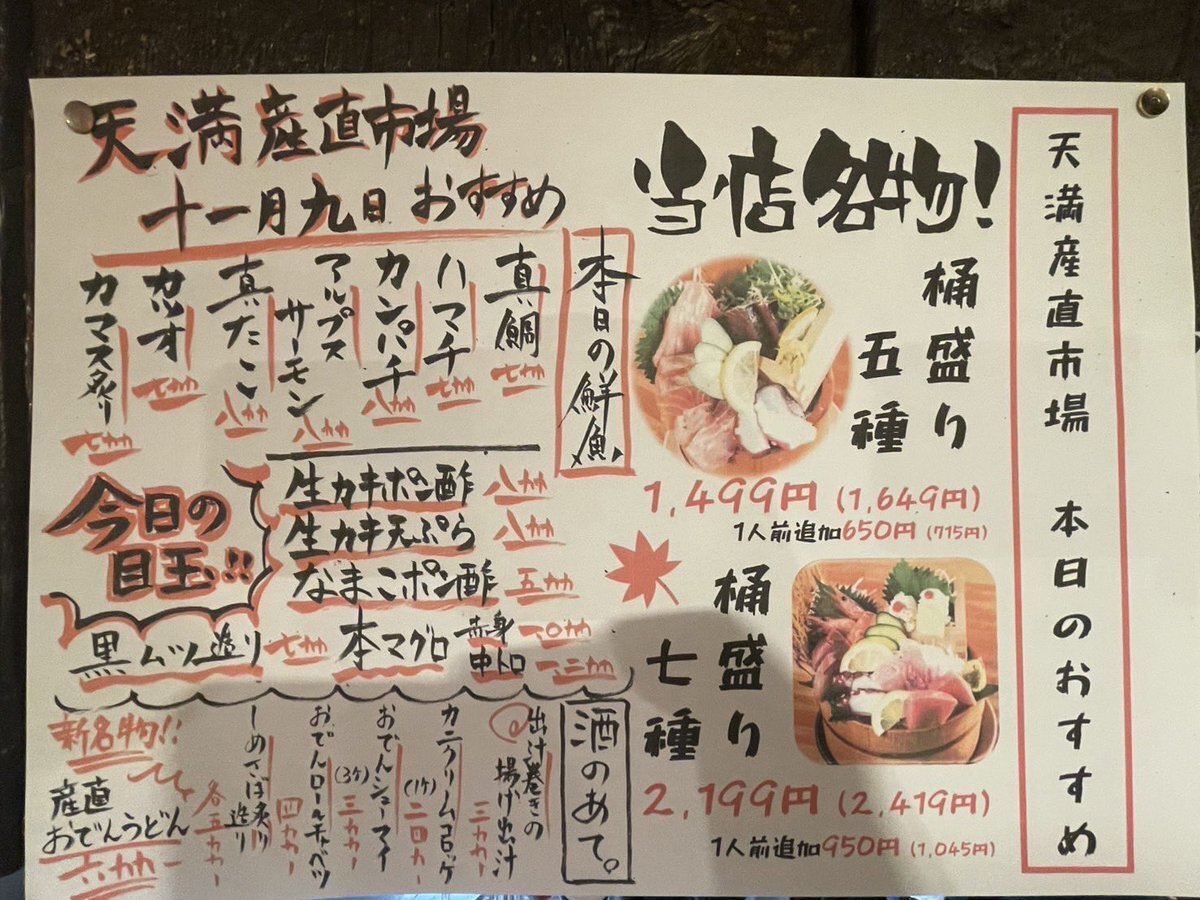 天満産直市場 本日のおすすめ
当店名物!
桶盛り
五種
1,499円 (1,649円)
1人前追加650円 (715円)
桶盛り
七種
2,199円 (2,419円)
1人前追加950円 (1,045円)
天満産直市場
十一月九日 おすすめ
本日の鮮魚
真鯛 七九九
ハマチ 七九九
カンパチ 八九九
アルプスサーモン 八九九
真だこ 八九九
カツオ 七九九
カマス炙り 七九九
今日の
目玉!!
生カキポン酢 八九九
生カキ天ぷら 八九九
なまこポン酢 五九九
黒ムツ造り 七九九
本マグロ
赤身 一〇九九
中トロ 一三九九
酒のあて。
出汁巻きの
揚げ出汁 三九九ー
カニクリームコロッケ
(1ケ) 二〇九ー
おでんシューマイ
(3ケ) 三九九ー
おでんロールキャベツ
四九九ー
しめさば炙り
造り
各五九九ー
新名物!!
産直
おでんうどん
六九九ー